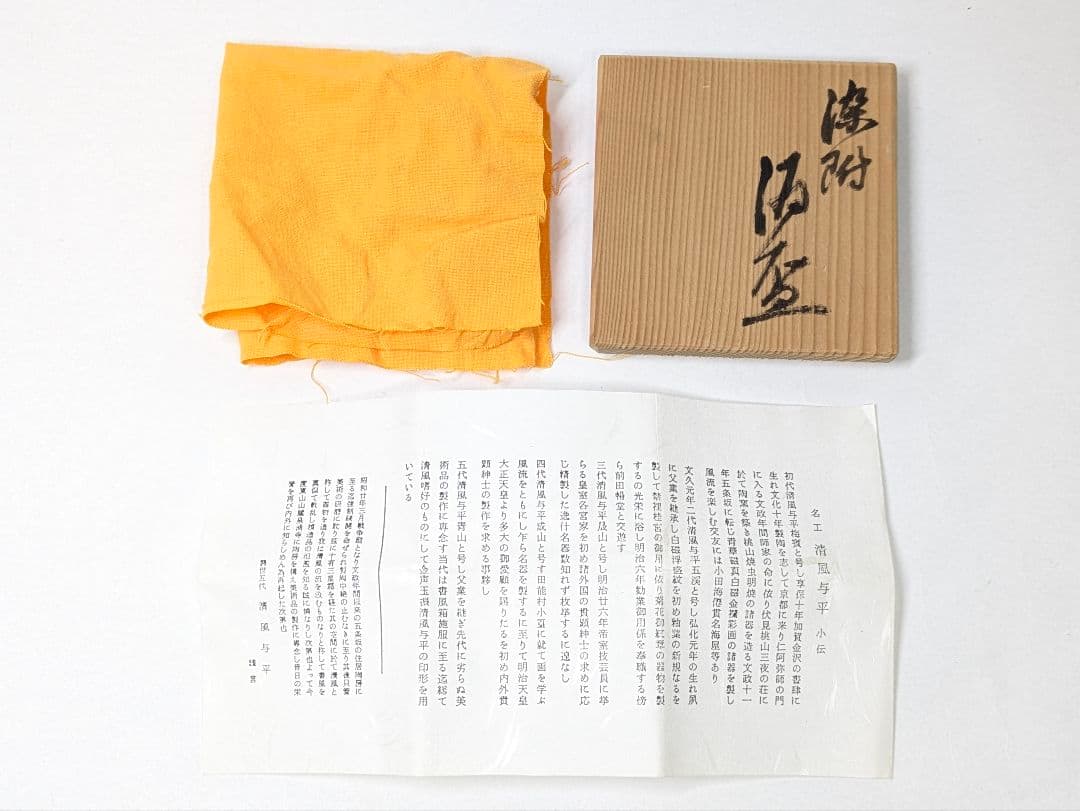 染附
酒盃
名工 清風与平 小伝
初代清風与平梅賓と号し享保十年加賀金沢の書肆に
生れ文化十年製陶を志して京都に来り仁阿弥師の門
に入る文政年間師家の命に依り伏見桃山三夜の荘に
於て陶窯を築き桃山焼虫明焼の諸器を造る文政十一
年五条坂に転じ青華磁真白磁金襴彩画の諸器を製し
風流を楽しむ交友には小田海僊貫名海屋等あり
文久元年二代清風与平五渓と号し弘化元年の生れ夙
に父業を継承し白磁浮盛紋を初め釉薬の新規なるを
製して禁裡桂宮の御用に依り菊花御紋章の器物を製
するの光栄に浴し明治六年勧業御用係を奉職する傍
ら前田暢堂と交遊す
三代清風与平晟山と号し明治廿六年帝室技芸員に挙
らる皇室各宮家を初め諸外国の貴顕紳士の求めに応
じ精製した逸什名器数知れず枚挙するに遑なし
四代清風与平成山と号す田能村小亘に就て画を学ぶ
風流をともにし乍ら名器を製するに至りて明治天皇
大正天皇より多大の御愛顧を賜りたるを初め内外貴
顕紳士の製作を求める事夥し
五代清風与平青山と号し父業を継ぎ先代に劣らぬ美
術品の製作に専念す当代は書風箱施服に至る迄総て
清風嗜好のものにして金声玉振清風与平の印形を用
いている
昭和廿年三月戦争酣となり文政年間以来の五条坂の住居陶房に
至る迄強制疎開を命ぜられ製陶中絶の止むなきに至り其後只管
美術の研磨に取り既に十有三星霜を経た其の空間に於て清風と
称して百餘を造り我は清風の流を汲むものなりと称して書風を
真似て
清風与平